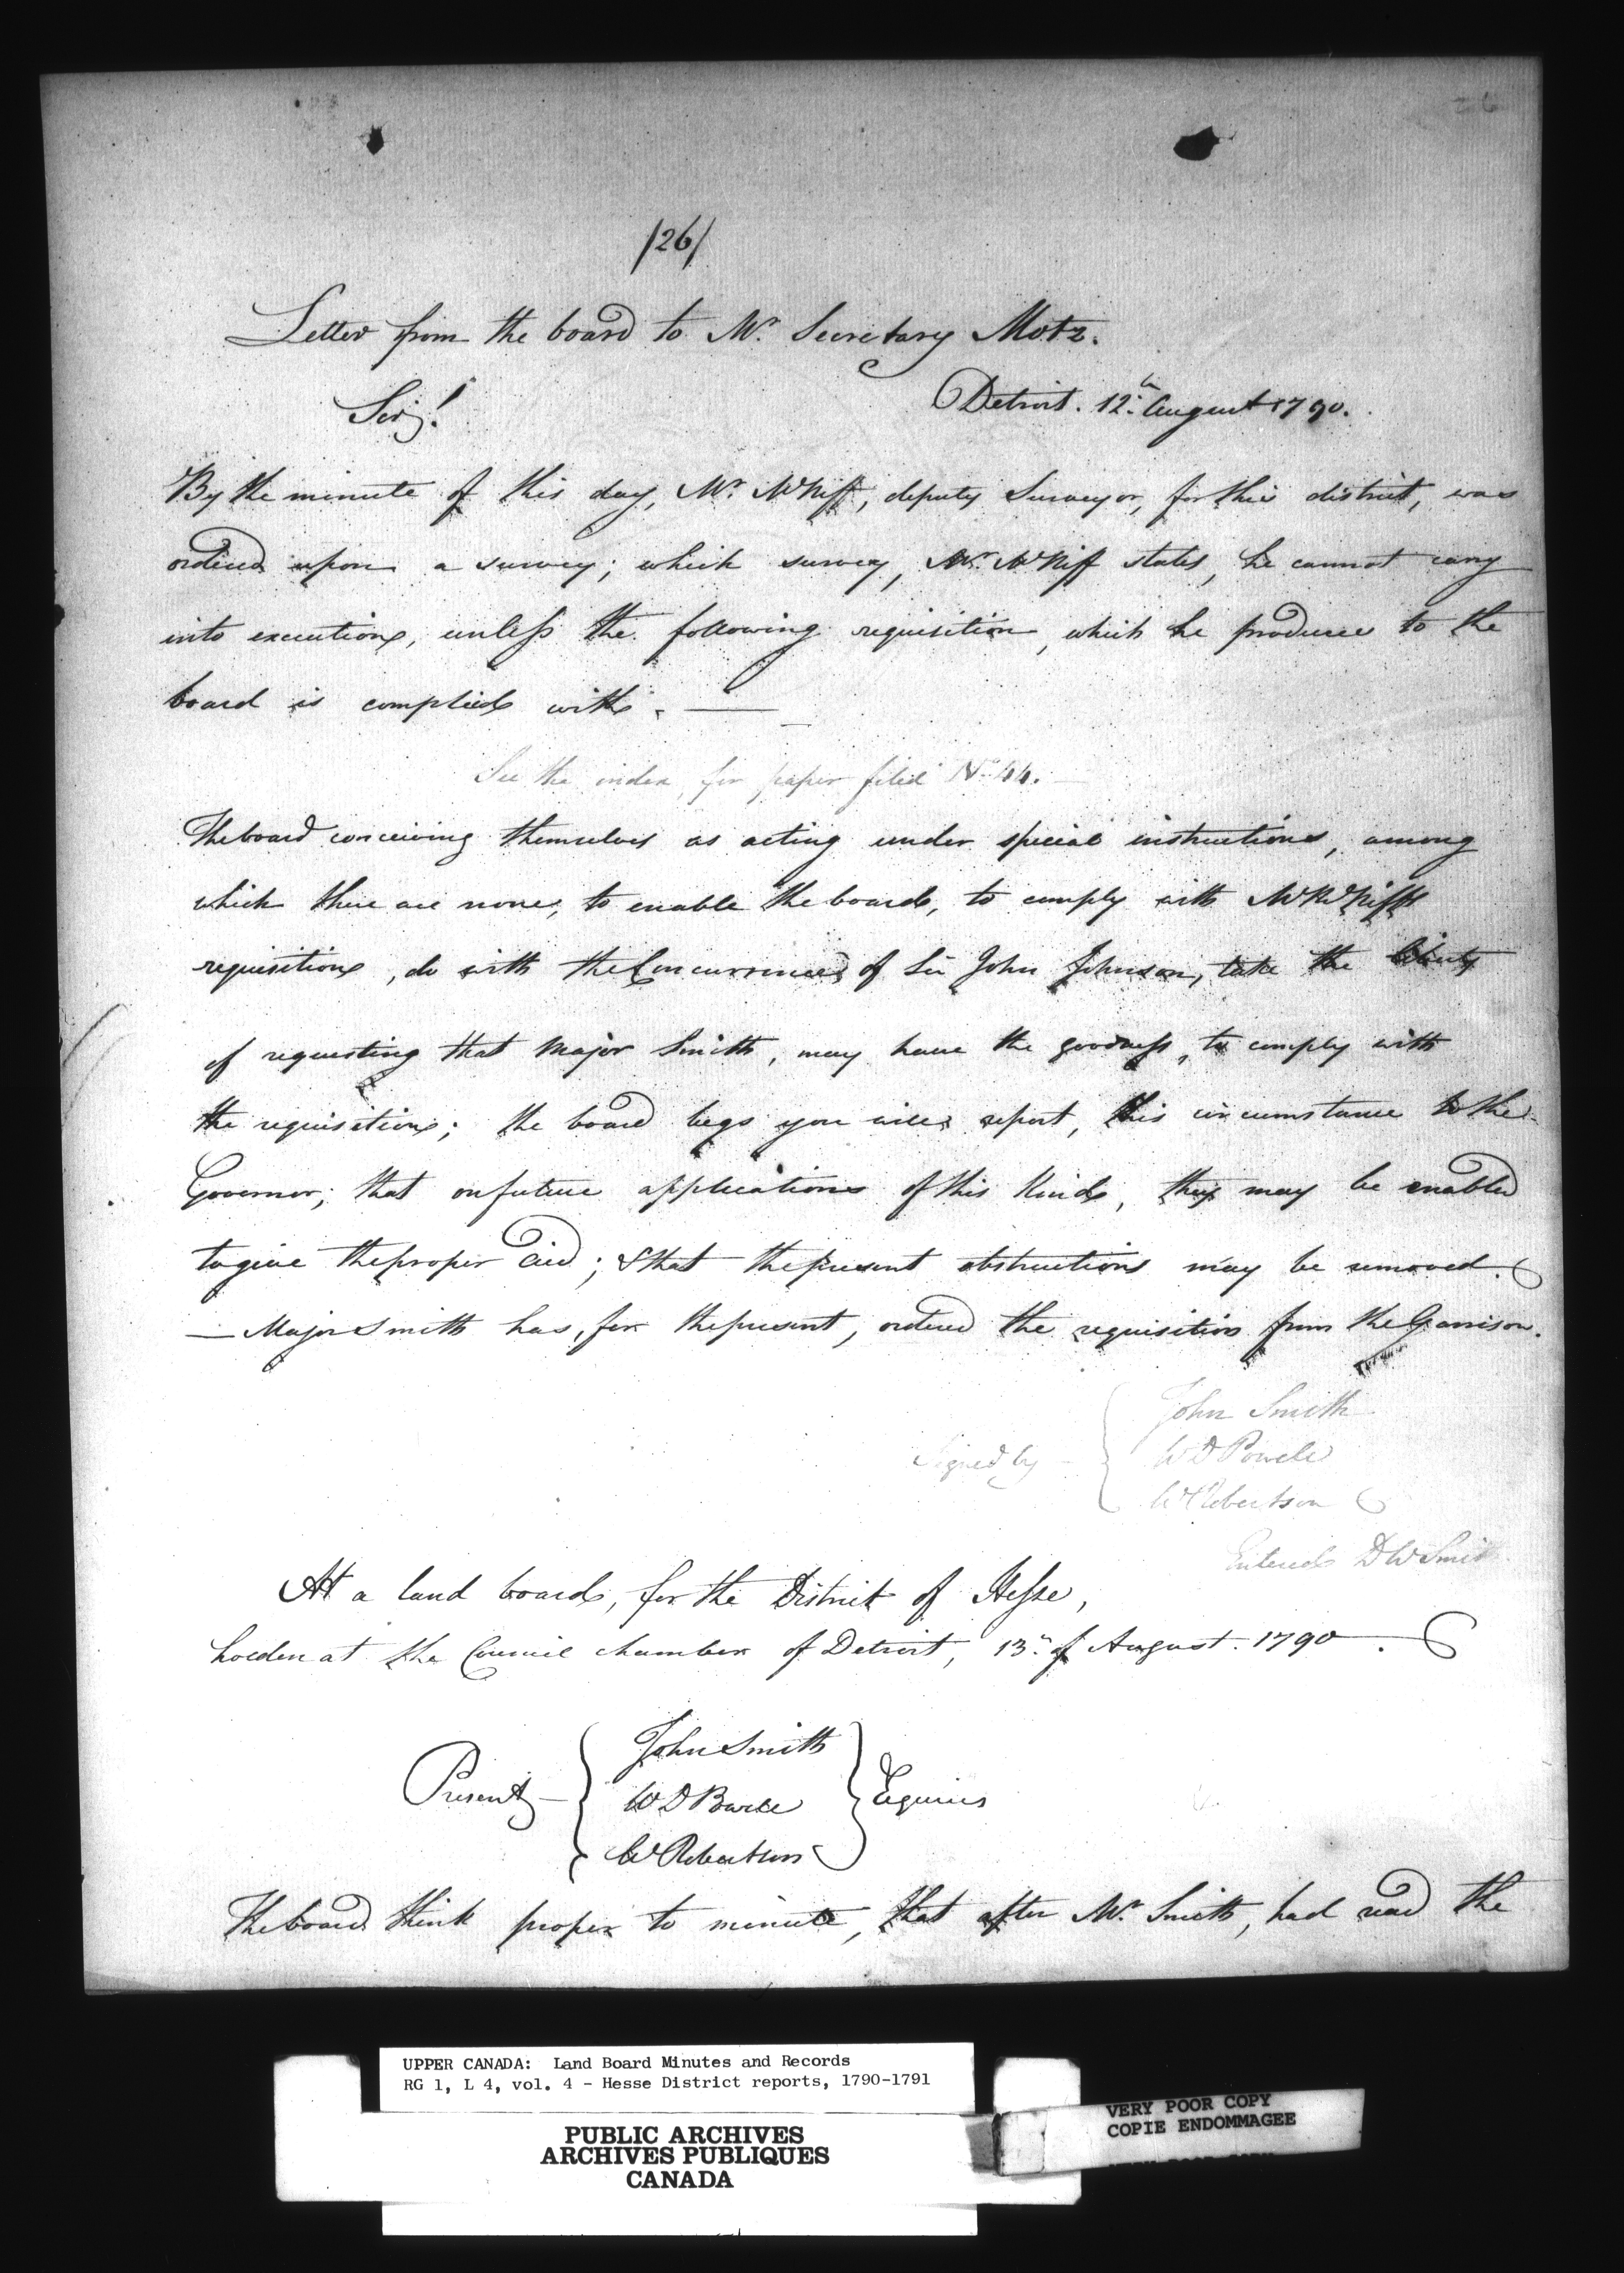 /26/
Letter from the board to Mr. Secretary Motz.
Sir! Detroit. 12th August 1790.
By the minute of this day, Mr. McNiff, deputy Surveyor, for this district, was
ordered upon a survey; which survey, Mr. McNiff states, he cannot carry
into execution, unless the following requisition, which he produces to the
board is complied with. —
See the index, for paper filed No. 44. —
The board conceiving themselves as acting under special instructions, among
which there are none, to enable the board, to comply with Mr McNiffs
requisition, do with the Concurrence of Sir John Johnson, take the liberty
of requesting that Major Smith, may have the goodness, to comply with
the requisition; the board begs you will report, this circumstance to the
Governor; that on future applications of this kind, they may be enabled
to give the proper aid; & that the present obstructions may be removed.
— Major Smith has, for the present, ordered the requisition from the Garrison.
Signed by — { John Smith
W D Powell
W Robertson
Entered D W Smith
At a land board, for the District of Hesse,
holden at the Council chamber of Detroit, 13th of August. 1790.
Present — { John Smith
W D Powell } Esquires
W Robertson
The board think proper to minute, that after Mr. Smith, had read the
UPPER CANADA: Land Board Minutes and Records
RG 1, L 4, vol. 4 - Hesse District reports, 1790-1791
PUBLIC ARCHIVES
ARCHIVES PUBLIQUES
CANADA
VERY POOR COPY
COPIE ENDOMMAGEE